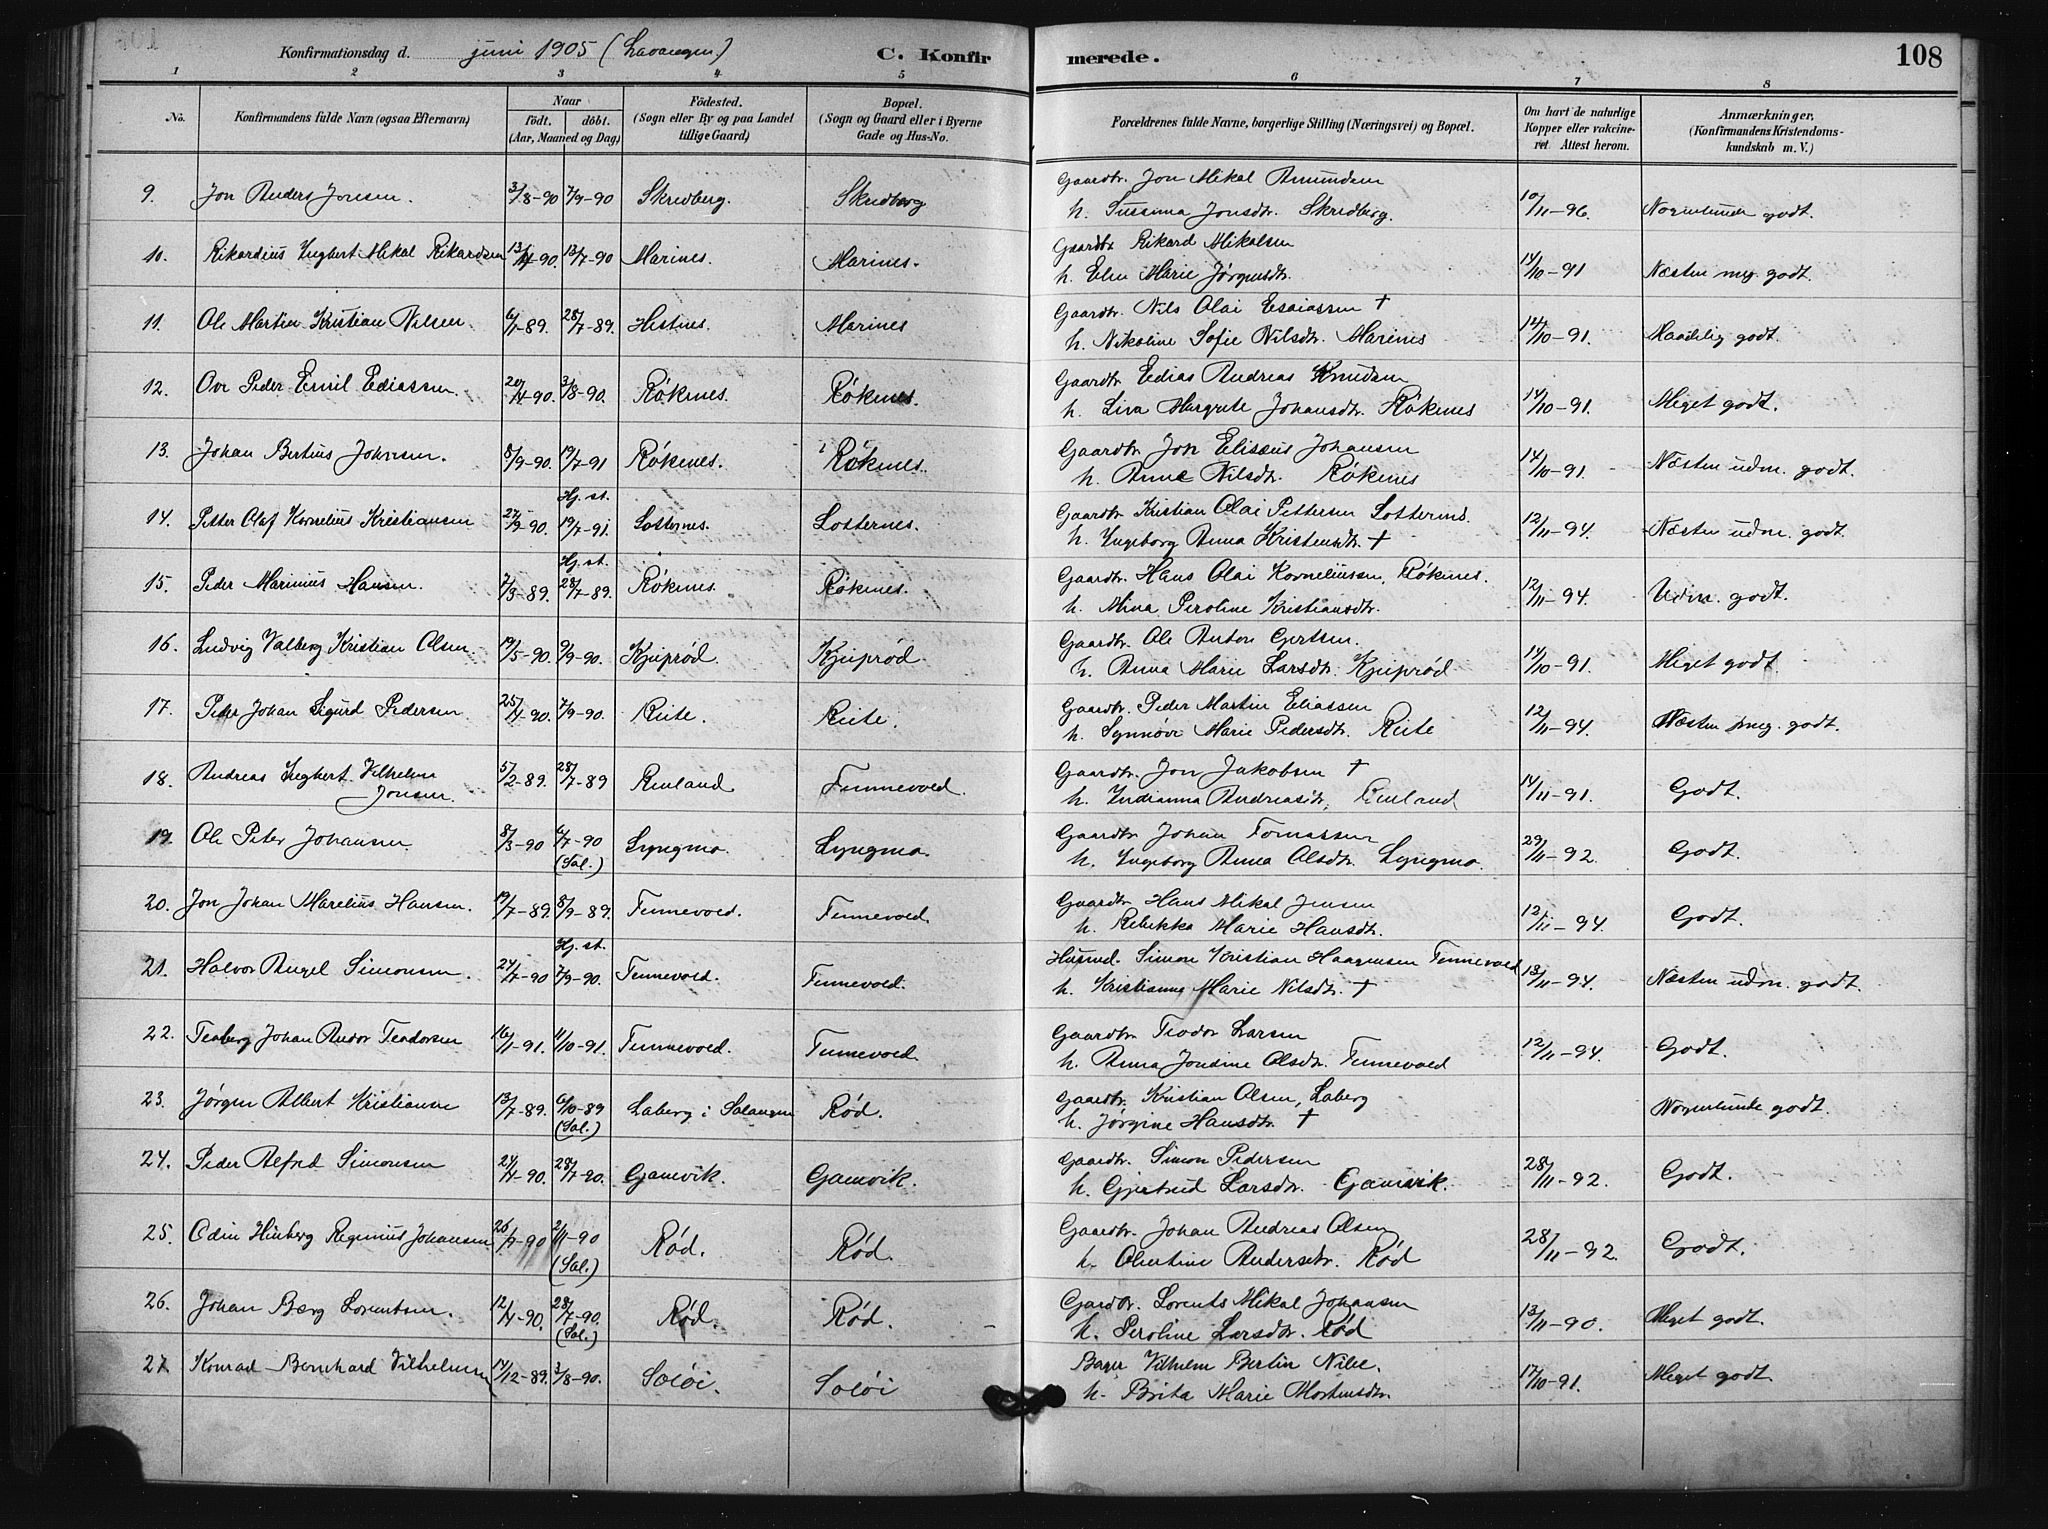 Konfirmationsdag d. juni 1905 (Lavangen)
C. Konfirmerede.
108
1 2 3 4 5 6 7 8
No.
Konfirmandens fulde Navn (ogsaa Efternavn)
Naar
födt. döbt.
(Aar, Maaned og Dag)
Födested.
(Sogn eller By og paa Landet tillige Gaard)
Bopæl.
(Sogn og Gaard eller i Byerne Gade og Hus-No.
Forældrenes fulde Navne, borgerlige Stilling (Næringsvei) og Bopæl.
Om havt de naturlige Kopper eller vakcineret. Attest herom.
Anmærkninger.
(Konfirmandens Kristendomskundskab m. V.)
9. Jon Anders Jonsen. 3/8-90 7/9-90 Skredberg. Skredberg Gaardbr. Jon Mikal Amundsen
h. Sussanna Jonsdtr. Skredberg. 10/11-96. Nogenlunde godt.
10. Rikardius Ingbert Mikal Rikardsen 13/4-90. 13/7-90 Marines. Marines. Gaardbr. Rikard Mikalsen
h. Elen Marie Jørgensdtr. 14/10-91 Næsten meg. godt.
11. Ole Martin Kristian Nilsen. 6/1-89. 28/7-89. Histnes. Marines Gaardbr. Nils Olai Esaiassen †
h. Nikoline Sofie Nilsdtr. Marines 14/10-91. Maadelig godt.
12. Ove Peder Emil Ediassen. 20/4-90. 3/8-90. Røkenes. Røkenes. Gaardbr. Edias Andreas Knudsen
h. Liva Margrete Johansdtr. Røkenes 14/10-91. Meget godt.
13. Johan Bertius Johnsen. 8/9-90. 19/7-91 Røkenes. Røkenes. Gaardbr. Jon Elisæus Johansen
h. Anne Nilsdtr. Røkenes 14/10-91. Næsten udm. godt.
14. Petter Olaf Kornelius Kristiansen 27/9-90. Hj. st. 19/7-91. Lotternes. Lotternes. Gaardbr. Kristian Olai Pettersen Lotternes.
h. Ingeborg Anna Kristensdtr. † 12/11-94. Næsten udm. godt.
15. Peder Marinius Hansen. 7/3-89. Hj. st. 28/7-89. Røkenes. Røkenes. Gaardbr. Hans Olai Korneliussen, Røkenes.
h. Mina Peroline Kristiansdtr. 12/11-94. Udm. godt.
16. Ludvig Valberg Kristian Olsen 19/5-90. 9/9-90. Kjeiprød. Kjeiprød. Gaardbr. Ole Anton Gjertsen.
h. Anna Marie Larsdtr. Kjeiprød 14/10-91. Meget godt.
17. Peder Johan Sigurd Pedersen. 25/4-90. 7/9-90. Reite. Reite. Gaardbr. Peder Martin Eliassen
h. Synnøve Marie Pedersdtr. Reite 12/11-94. Næsten meg. godt.
18. Andreas Ingbert Vilhelm Jonsen. 5/2-89. 28/7-89 Renland Tennevold. Gaardbr. Jon Jakobsen †
h. Indianna Andreasdtr. Renland 14/11-91. Godt.
19. Ole Peter Johansen. 8/3-90 6/7-90 (Sal.) Lyngmo. Lyngmo. Gaardbr. Johan Tomassen
h. Ingeborg Anna Olsdtr. Lyngmo. 29/11-92. Godt.
20. Jon Johan Marelius Hansen. 19/7-89. 8/9-89. Tennevold. Tennevold. Gaardbr. Hans Mikal Jensen
h. Rebekka Marie Hansdtr. 12/11-94. Godt.
21. Halvor Angel Simonsen. 24/7-90 Hj. st. 7/9-90. Tennevold. Tennevold. Husmd. Simon Kristian Haagensen Tennevold
h. Kristianna Marie Nilsdtr. † 13/11-94. Næsten udm. godt.
22. Teaberg Johan Andor Teodorsen 16/1-91. 11/10-91. Tennevold. Tennevold. Gaardbr. Teodor Larsen
h. Anna Jondine Olsdtr. Tennevold 12/11-94. Godt.
23. Jørgen Albert Kristiansen 13/7-89. 6/10-89 (Sal.) Laberg i Salangen Rød. Gaardbr. Kristian Olsen, Laberg
h. Jørgine Hansdtr. † Nogenlunde godt.
24. Peder Alfred Simonsen 24/4-90. 28/7-90. Gamvik. Gamvik. Gaardbr. Simon Pedersen
h. Gjertrud Larsdtr. Gamvik. 28/11-92. Godt.
25. Odin Hinberg Regimius Johansen 26/7-90 2/11-90 (Sal.) Rød. Rød. Gaardbr. Johan Andreas Olsen
h. Olertine Andersdtr. Rød 28/11-92. Godt.
26. Johan Berg Lorentsen. 12/4-90. 28/7-90. (Sal.) Rød. Rød. Gardbr. Lorents Mikal Johansen
h. Peroline Larsdtr. Rød 13/11-90. Meget godt.
27 Konrad Bernhard Vilhelmsen 14/12-89. 3/8-90. Soløi. Soløi Bager Vilhelm Bertin Nilse.
h. Brita Marie Mortensdtr. 17/10-91. Meget godt.